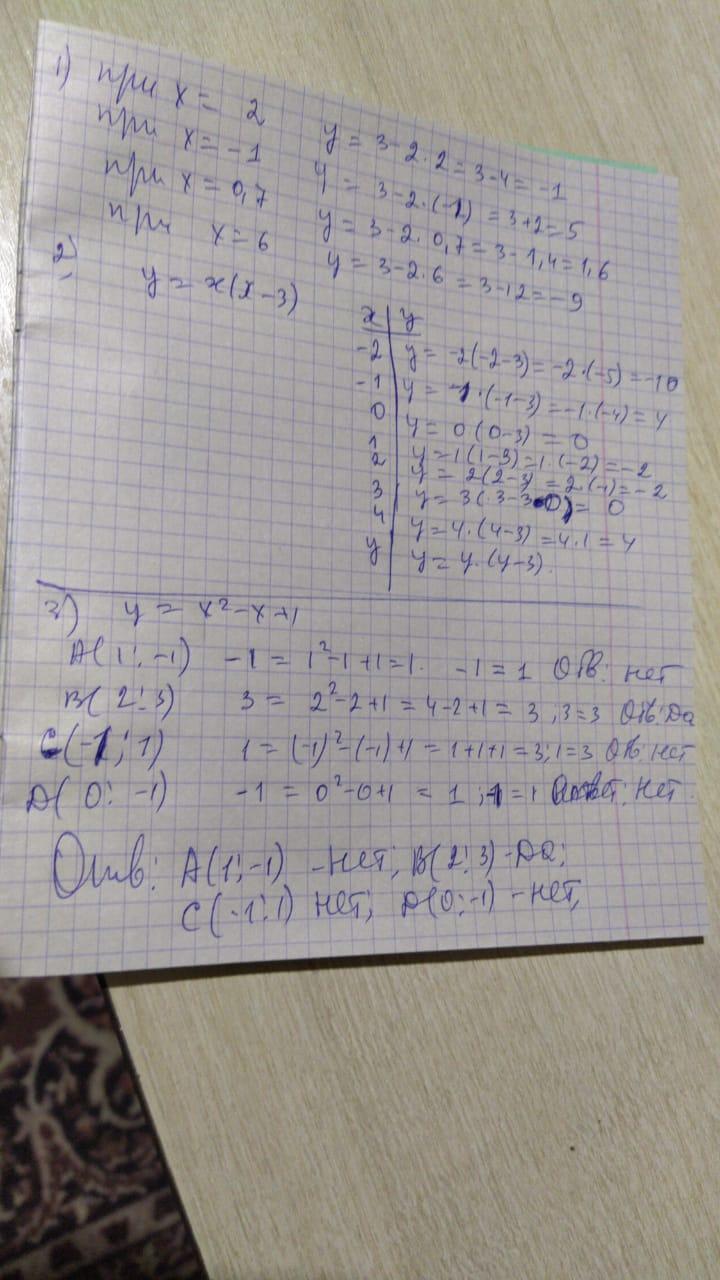 1) при x = 2 y = 3-2·2 = 3-4 = -1
при x = -1 y = 3-2·(-1) = 3+2 = 5
при x = 0,7 y = 3-2·0,7 = 3-1,4 = 1,6
при x = 6 y = 3-2·6 = 3-12 = -9
2) y = x(x-3)
x | y
-2 | y = -2(-2-3) = -2·(-5) = -10
-1 | y = -1·(-1-3) = -1·(-4) = 4
0 | y = 0(0-3) = 0
1 | y = 1(1-3) = 1·(-2) = -2
2 | y = 2(2-3) = 2·(-1) = -2
3 | y = 3(3-3·0) = 0
4 | y = 4·(4-3) = 4·1 = 4
y | y = y·(y-3).
3) y = x²-x+1
A(1; -1) -1 = 1²-1+1 = 1. -1 = 1 Отв: нет
B(2; 3) 3 = 2²-2+1 = 4-2+1 = 3; 3=3 Отв: Да
C(-1; 1) 1 = (-1)²-(-1)+1 = 1+1+1 = 3; 1=3 Отв: нет
D(0; -1) -1 = 0²-0+1 = 1; -1=1 Ответ: Нет.
Отв: A(1; -1) - нет; B(2; 3) - Да;
C(-1; 1) нет; D(0; -1) - нет,